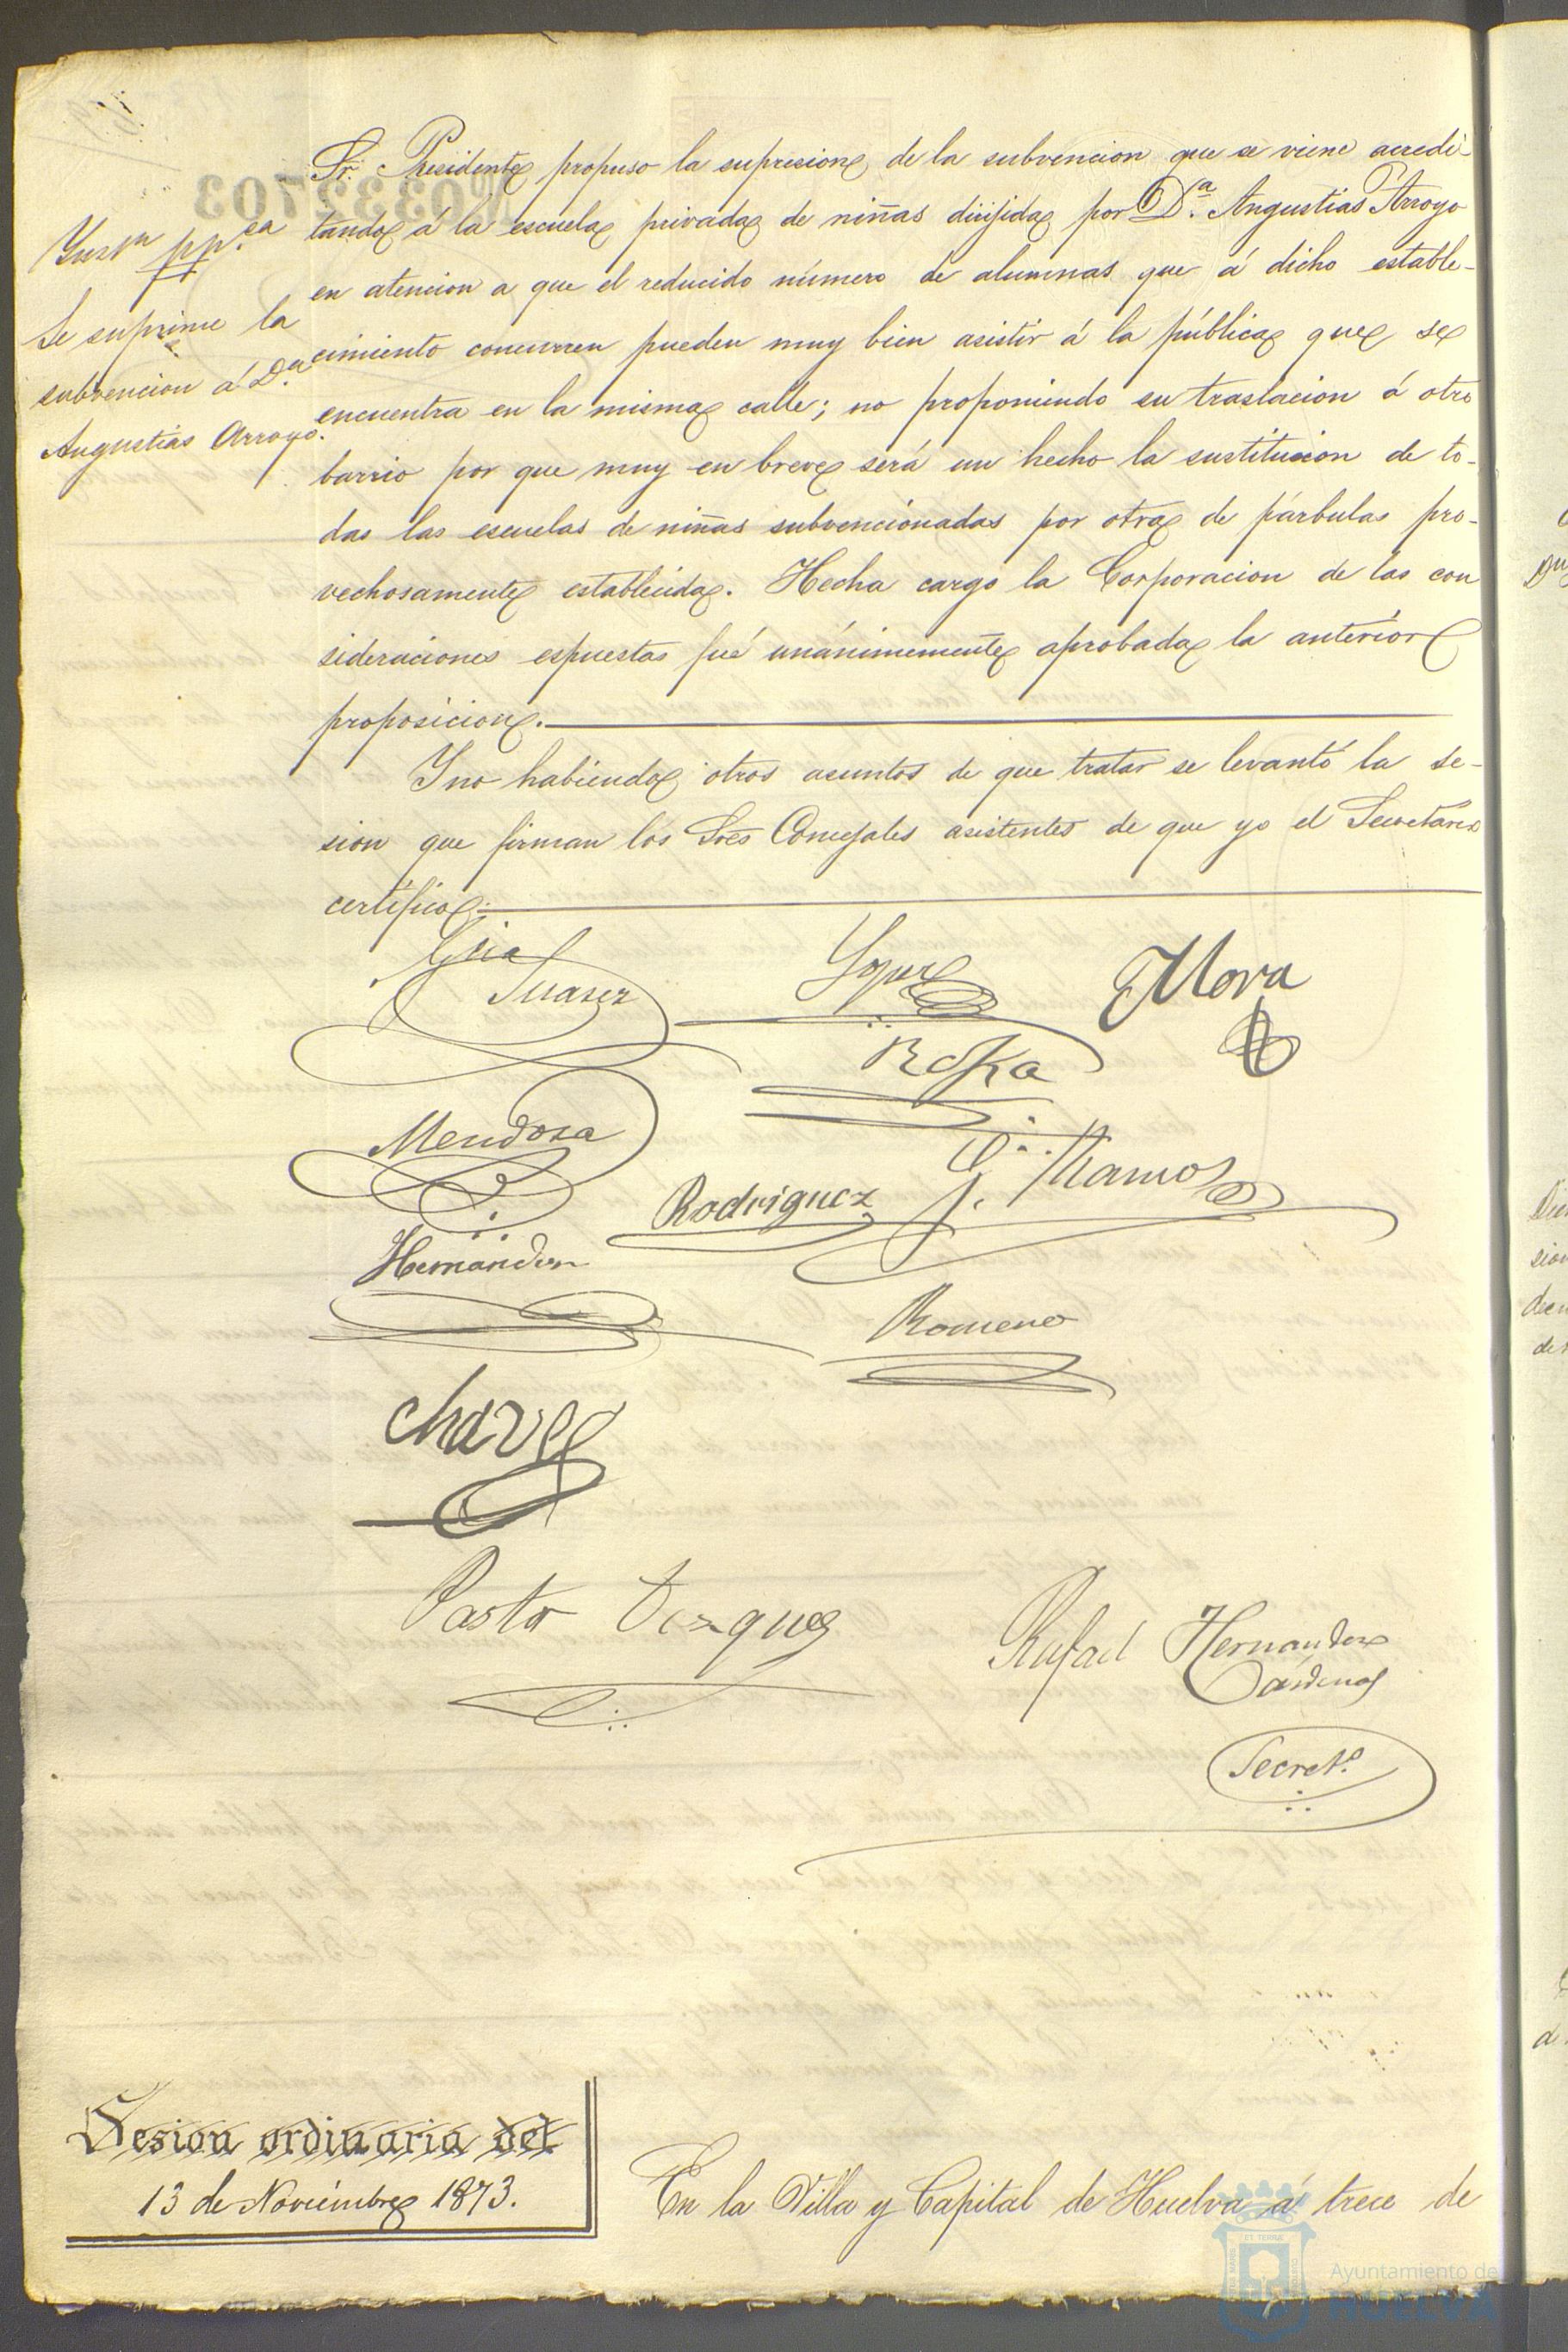 Sr. Presidente propuso la supresion de la subvencion que se viene acredi-
tando á la escuela privada de niñas dirijida por D.ª Angustias Arroyo
en atencion a que el reducido número de alumnas que á dicho estable-
cimiento concurren pueden muy bien asistir á la pública que se
encuentra en la misma calle; no proponiendo su traslacion á otro
barrio por que muy en breve será un hecho la sustitucion de to-
das las escuelas de niñas subvencionadas por otra de párbulas pro-
vechosamente establecida. Hecha cargo la Corporacion de las con
sideraciones espuestas fué unánimemente aprobada la anterior
proposicion.
Y no habiendo otros asuntos de que tratar se levantó la se-
sion que firman los Sres Concejales asistentes de que yo el Secretario
certifico.
pp.ca
Se suprime la
subvencion á D.ª
Angustias Arroyo.
0332703
Suarez
Lopez
Mora
Mendoza
Rodriguez
J. Ramos
Hernandez
Romero
Chavez
Pastor Vazquez
Rafael Hernandez
Cárdenas
Secret.º
Sesion ordinaria del
13 de Noviembre 1873.
En la Villa y Capital de Huelva á trece de
Ayuntamiento de
HUELVA